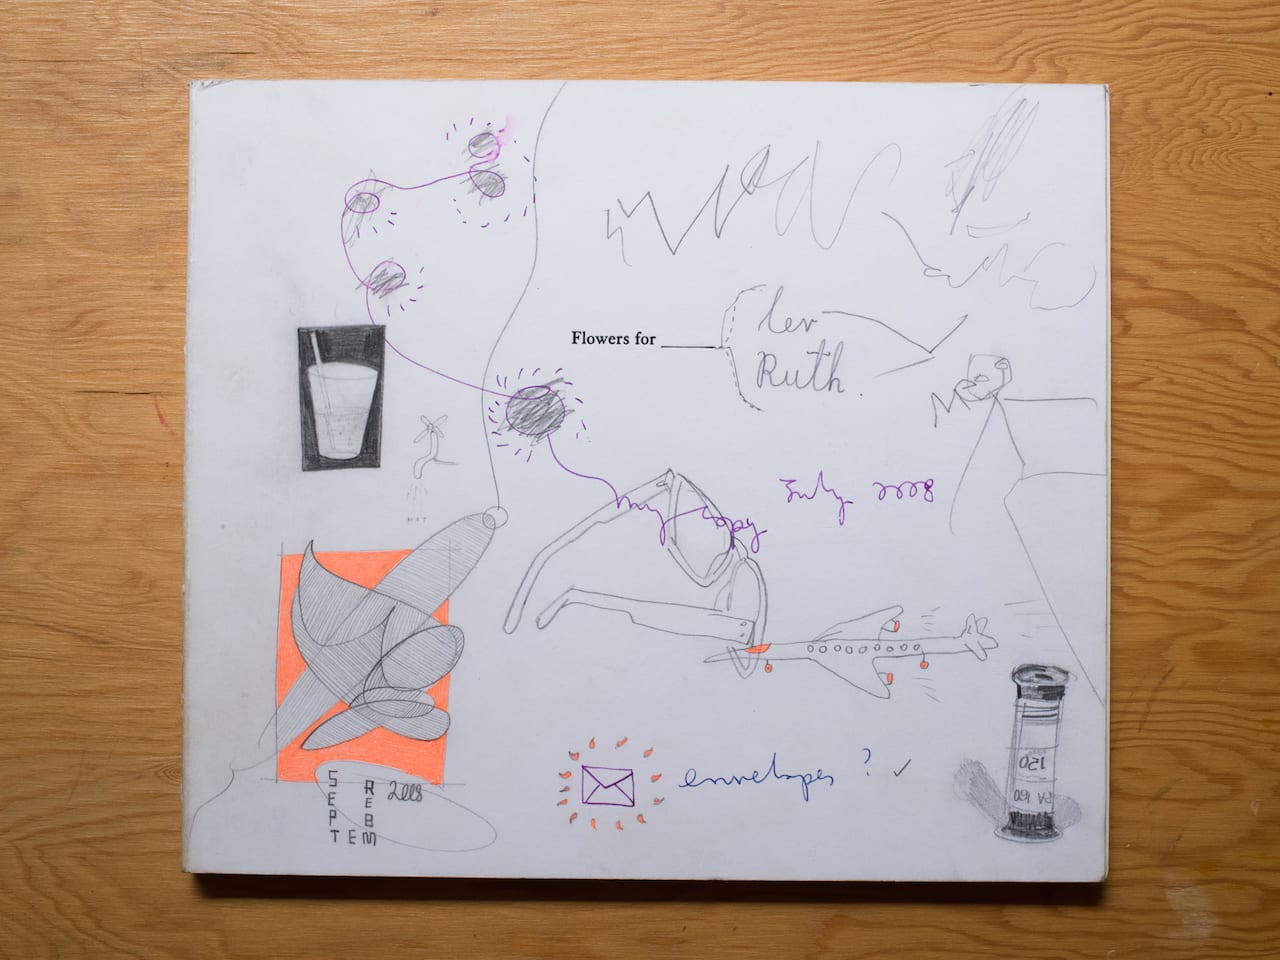 Flowers for
lev
Ruth.
Me
my copy
July 2008
HOT
120
PA 160
envelopes ? ✓
SEPTEMBER 2008